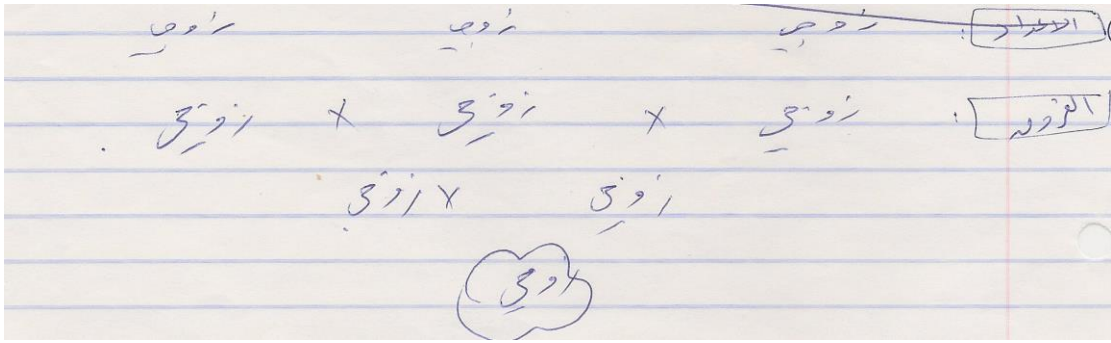 الاعداد : زوجي زوجي زوجي
الفروق : زوجي × زوجي × زوجي .
زوجي × زوجي
زوجي